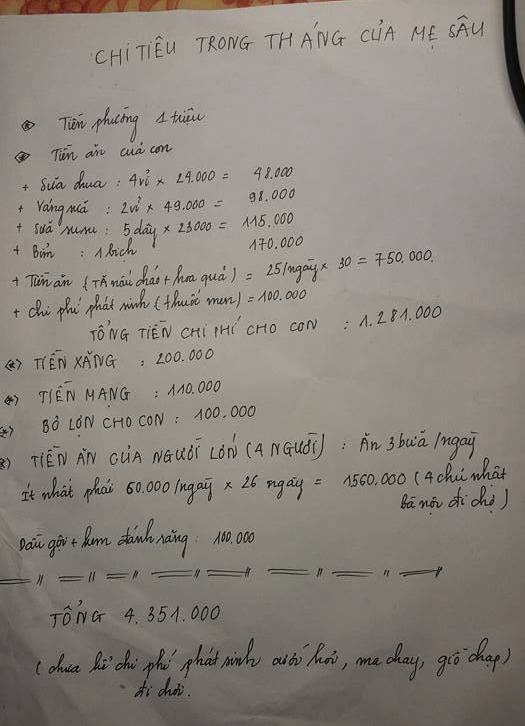 CHI TIÊU TRONG THÁNG CỦA MẸ SÂU
Tiền phường 1 triệu
Tiền ăn của con
+ Sữa chua : 4 vỉ × 24.000 = 48.000
+ Váng sữa : 2 vỉ × 49.000 = 98.000
+ Sữa susu : 5 dây × 23000 = 115.000
+ Bỉm : 1 bịch 170.000
+ Tiền ăn (TĂ nấu cháo + hoa quả) = 25/ngày × 30 = 750.000.
+ Chi phí phát sinh (thuốc men) = 100.000
TỔNG TIỀN CHI PHÍ CHO CON : 1.281.000
(*) TIỀN XĂNG : 200.000
(*) TIỀN MẠNG : 110.000
(*) BỎ LỢN CHO CON : 100.000
(*) TIỀN ĂN CỦA NGƯỜI LỚN (4 NGƯỜI) : Ăn 3 bữa /ngày
Ít nhất phải 60.000/ngày × 26 ngày = 1560.000 (4 chủ nhật
bà nội đi chợ)
Dầu gội + kem đánh răng : 100.000
TỔNG 4.351.000
(chưa kể chi phí phát sinh cưới hỏi, ma chay, giỗ chạp)
đi chơi.